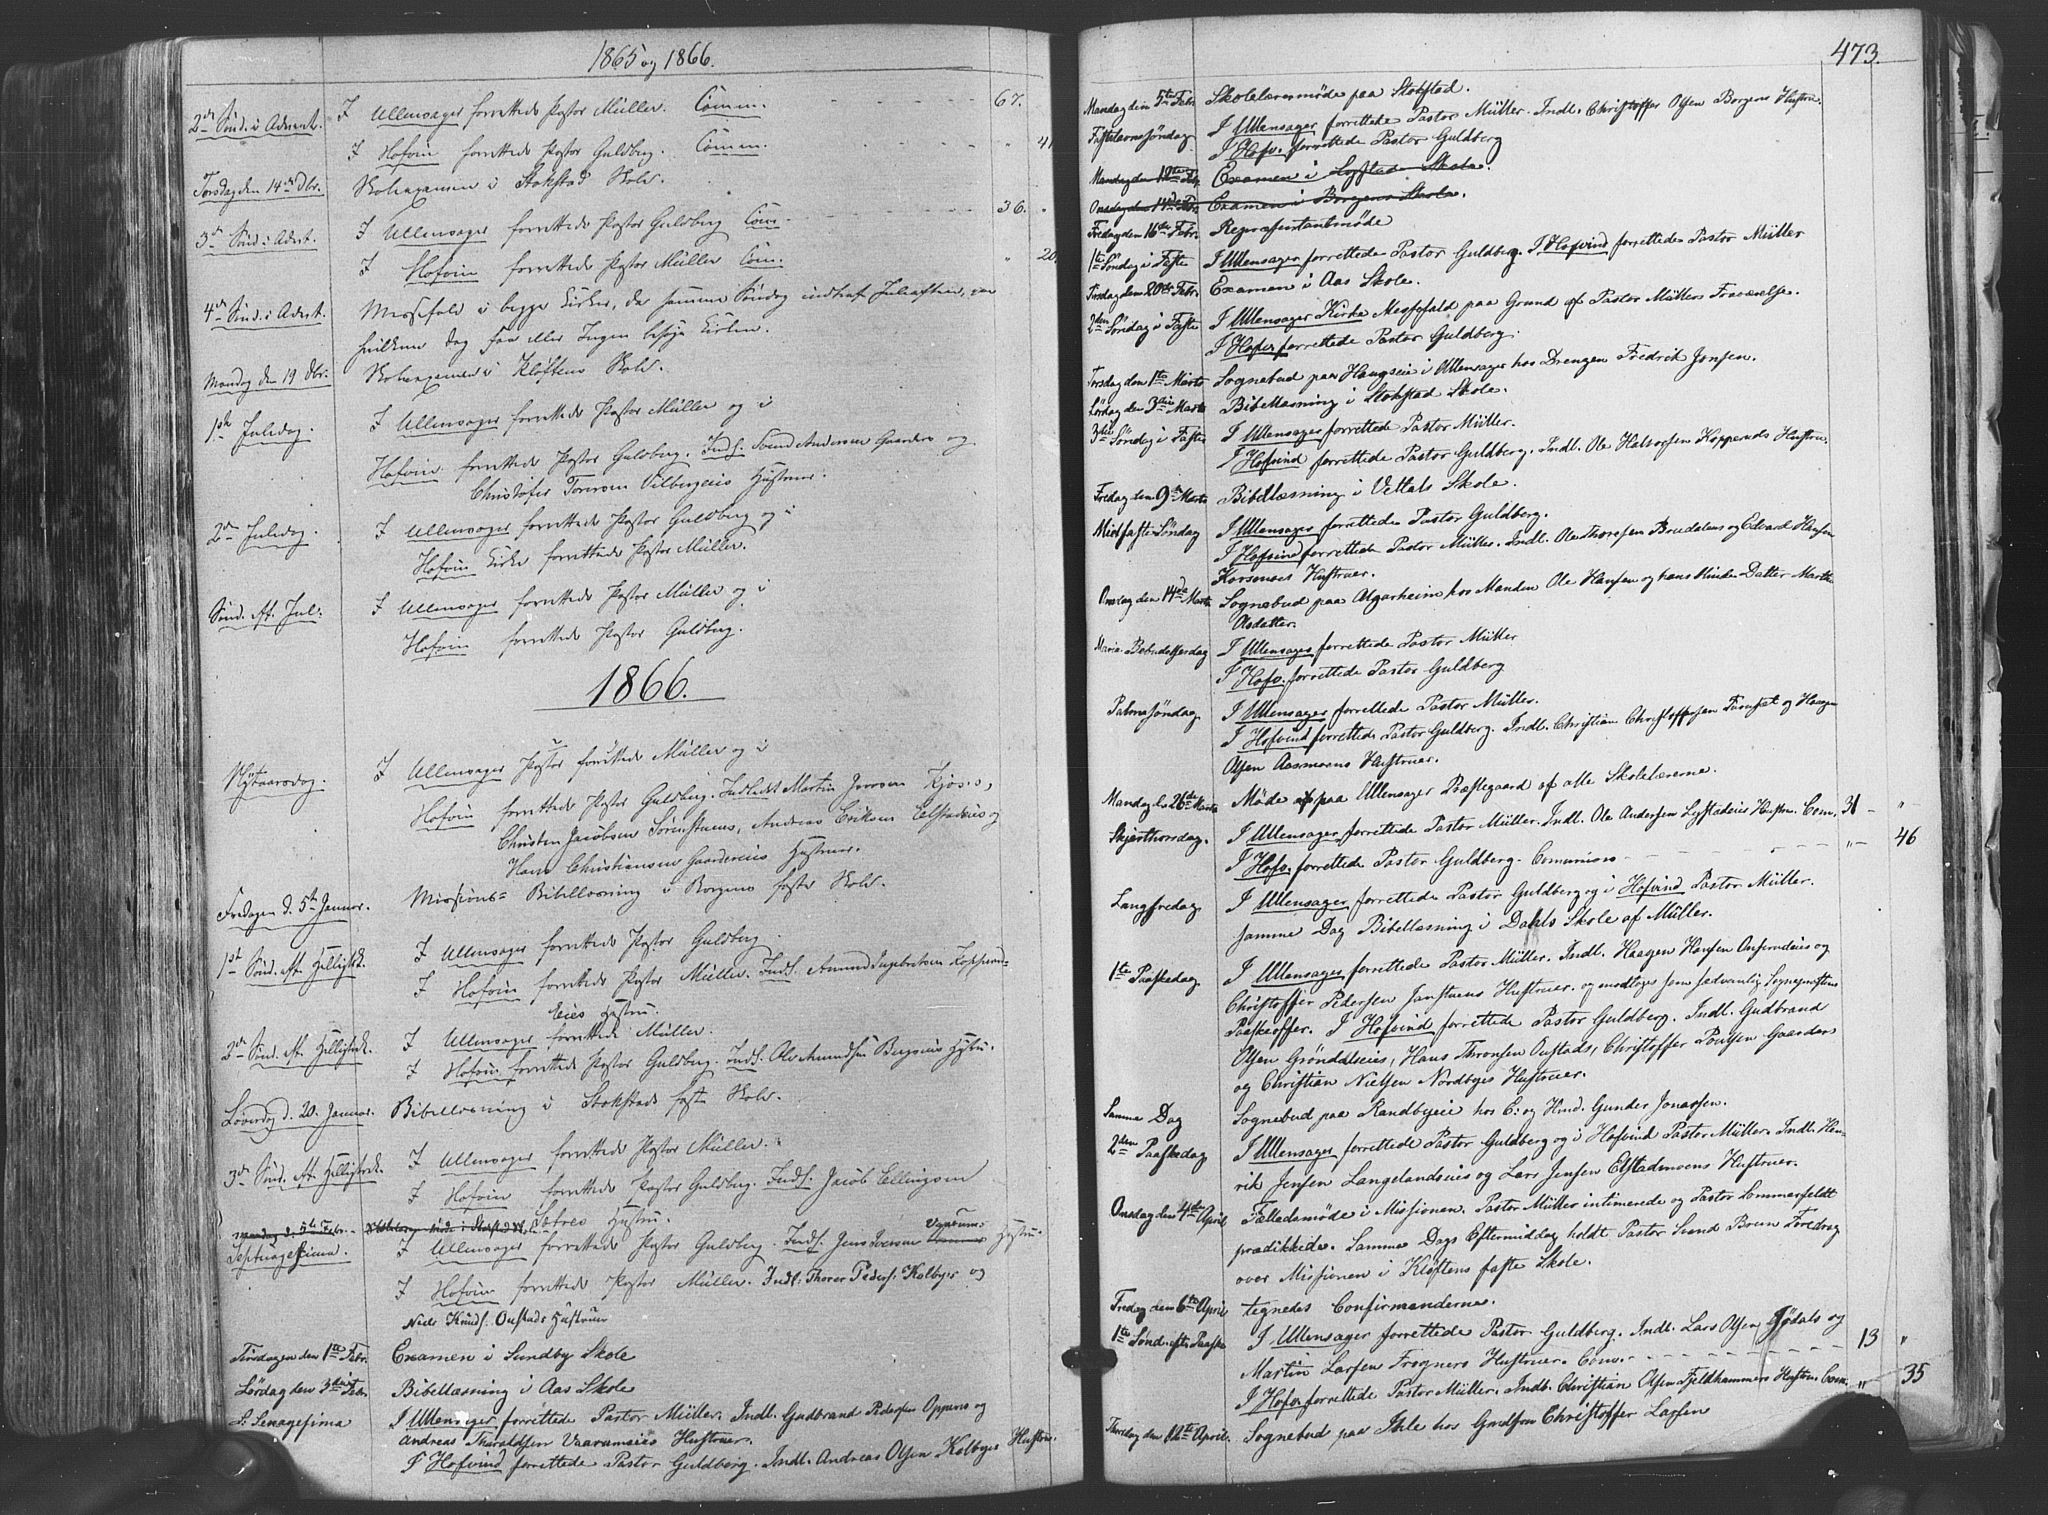 1865 og 1866.
2den Sönd. i Advent. I Ullensager forrettede Pastor Müller. Comm. 67.
I Hofvin forrettede Pastor Guldberg. Comm. " 41
Torsdag den 14de Dbr. Skoleexamen i Stokstad Skole.
3de Sönd. i Advt. I Ullensager forrettede Pastor Guldberg Com. 36. "
I Hofvin forrettede Pastor Müller Com. " 20
4de Sönd. i Advt. Messefald i begge Kirker, da samme Söndag indtraf Juleaften, paa
hvilken Dag Faa eller Ingen besøge Kirken.
Mandag den 19 Dbr. Skoleexamen i Kløftens Skole.
1ste Juledag. I Ullensager forrettede Pastor Müller og i
Hofvin forrettede Pastor Guldberg. Indl. Svend Andersen Gaarders og
Christofer Toresen Vilbergeies Hustruer.
2den Juledag. I Ullensager forrettede Pastor Guldberg og i
Hofvin Kirke forrettede Pastor Müller.
Sönd. Ef. Jul: I Ullensager forrettede Pastor Müller og i
Hofvin forrettede Pastor Guldberg.
1866.
Nÿtaarsdag. I Ullensager Pastor forrettede Müller og i
Hofvin forrettede Pastor Guldberg. Indledet Martin Kjøs's,
Christen Jacobsen Andreas Eriksen Elstadeies og
Hans Christiansen Gaardereies Hustruer.
Fredagen d. 5te Januar. Missions- Bibellæsning i Borgens faste Skole.
1ste Sönd. Ef. Helligtrek. I Ullensager forrettede Pastor Guldberg.
I Hofvin forrettede Pastor Müller. Indl. Amund Ingebretsen
Eies Hustru.
2den Sönd. Ef. Helligtrek. I Ullensager forrettede Müller.
I Hofvin forrettede Pastor Guldberg. Indl. Ole Amundsen Hustru.
Löverdag d. 20. Januar. Bibellæsning i Stokstads faste Skole.
3de Sönd. Ef. Helligtrek. I Ullensager forrettede Pastor Müller.
I Hofvin forrettede Pastor Guldberg. Indl. Jacob Ellingsen
Sætres Hustru.
Mandag d. 5te Febr.
Septuagesima. I Ullensager forrettede Pastor Guldberg. Indl. Jens Iversen Hustru.
I Hofvin forrettede Pastor Müller. Indl. Thorer Peders. Kolbyes og
Niels Knuds. Oustads Hustruer
Torsdagen den 1ste Febr. Examen i Sundby Skole
Lørdag den 3die Febr. Bibellæsning i Aas Skole
S. Sexagesima I Ullensager forrettede Pastor Müller. Indl. Gudbrand Pedersen Oppens og
Andreas Tharaldsen Vaarumeies Hustruer.
I Hofvind forrettede Pastor Guldberg. Indl. Andreas Olsen Kolbyes Hustru.
473.
Mandag den 5te Febr. Skolelærermøde paa Stokstad.
Fastelavnssøndag I Ullensager forrettede Pastor Müller. Indl. Christoffer Olsen Borgens Hustru.
I Hofv. forrettede Pastor Guldberg
Mandag den 12te Febr. Examen i Lystad Skole.
Onsdag den 14de Febr. Examen i Borgens Skole.
Fredag den 16de Febr. Repræsentantmøde
1ste Søndag i Faste I Ullensager forrettede Pastor Guldberg. I Hofvind forrettede Pastor Müller
Tirsdag den 20de Febr. Examen i Aas Skole.
2den Søndag i Faste I Ullensager Kirke Messefald paa Grund af Pastor Müllers Fraværelse.
I Hofv. forrettede Pastor Guldberg.
Torsdag den 1ste Marts Sognebud paa Haugseie i Ullensager hos Drengen Fredrik Jensen.
Lørdag den 3die Marts Bibellæsning i Stokstad Skole.
3die Søndag i Faste I Ullensager forrettede Pastor Müller.
I Hofvind forrettede Pastor Guldberg. Indl. Ole Halvorsen Hustru.
Fredag den 9de Marts Bibellæsning i Vettals Skole.
Midfaste Søndag I Ullensager forrettede Pastor Guldberg.
I Hofvind forrettede Pastor Müller. Indl. Ole Thoresen Brudalens og Edvard Hansen
Korsmoes Hustruer.
Onsdag den 14de Marts Sognebud paa Algarheim hos Manden Ole Hansen og hans Datter Marthe
Olsdatter.
Mariæ Bebudelsesdag I Ullensager forrettede Pastor Müller
I Hofv. forrettede Pastor Guldberg
Palmesøndag. I Ullensager forrettede Pastor Müller.
I Hofvind forrettede Pastor Guldberg. Indl. Christian Christoffersen og Haagen
Olsen Aasmoens Hustruer.
Mandag d. 26de Marts Møde paa Ullensager Præstegaard af alle Skolelærerne.
Skjærthorsdag. I Ullensager forrettede Pastor Müller. Indl. Ole Andersen Lystadeies Hustru. Com. 31 "
I Hofv. forrettede Pastor Guldberg. Comunion " 46
Langfredag. I Ullensager forrettede Pastor Guldberg og i Hofvind Pastor Müller.
samme Dag Bibellæsning i Dahls Skole af Müller.
1ste Paaskedag I Ullensager forrettede Pastor Müller. Indl. Haagen Hansen og
Christoffer Pedersen Hustruer. og modtoges som sædvanlig Sognepræstens
Paaskeoffer. I Hofvind forrettede Pastor Guldberg. Indl. Gudbrand
Olsen Grøndalseies, Hans Thronsen Oustads, Christoffer Poulsen Gaarders
og Christian Nielsen Nordbyes Hustruer.
Samme Dag Sognebud paa Randbyeie hos E: og Hmd. Gunder Jonassen.
2den Paaskedag I Ullensager forrettede Pastor Guldberg og i Hofvind Pastor Müller. Indl. Hen-
rik Jensen Langelandseies og Lars Jensen Elstadmoens Hustruer.
Onsdag den 4de April Fælledsmøde i Missionen. Pastor Müller intimerede og Pastor Sommerfeldt
prædikkede. Samme Dags Eftermiddag holdt Pastor Svend Brun Foredrag
over Missionen i Kløftens faste Skole.
Fredag den 6te April tegnedes Confirmanderne.
1ste Sønd. efter Paaske I Ullensager forrettede Pastor Guldberg. Indl. Lars Olsen Dødals og
Martin Larsen Frogners Hustruer. Com. 13 "
I Hofv. forrettede Pastor Müller. Indl. Christian Olsen Fjeldhammers Hustru. Com. " 35
Torsdag den 12te April. Sognebud paa Ihle hos Christoffer Larsen